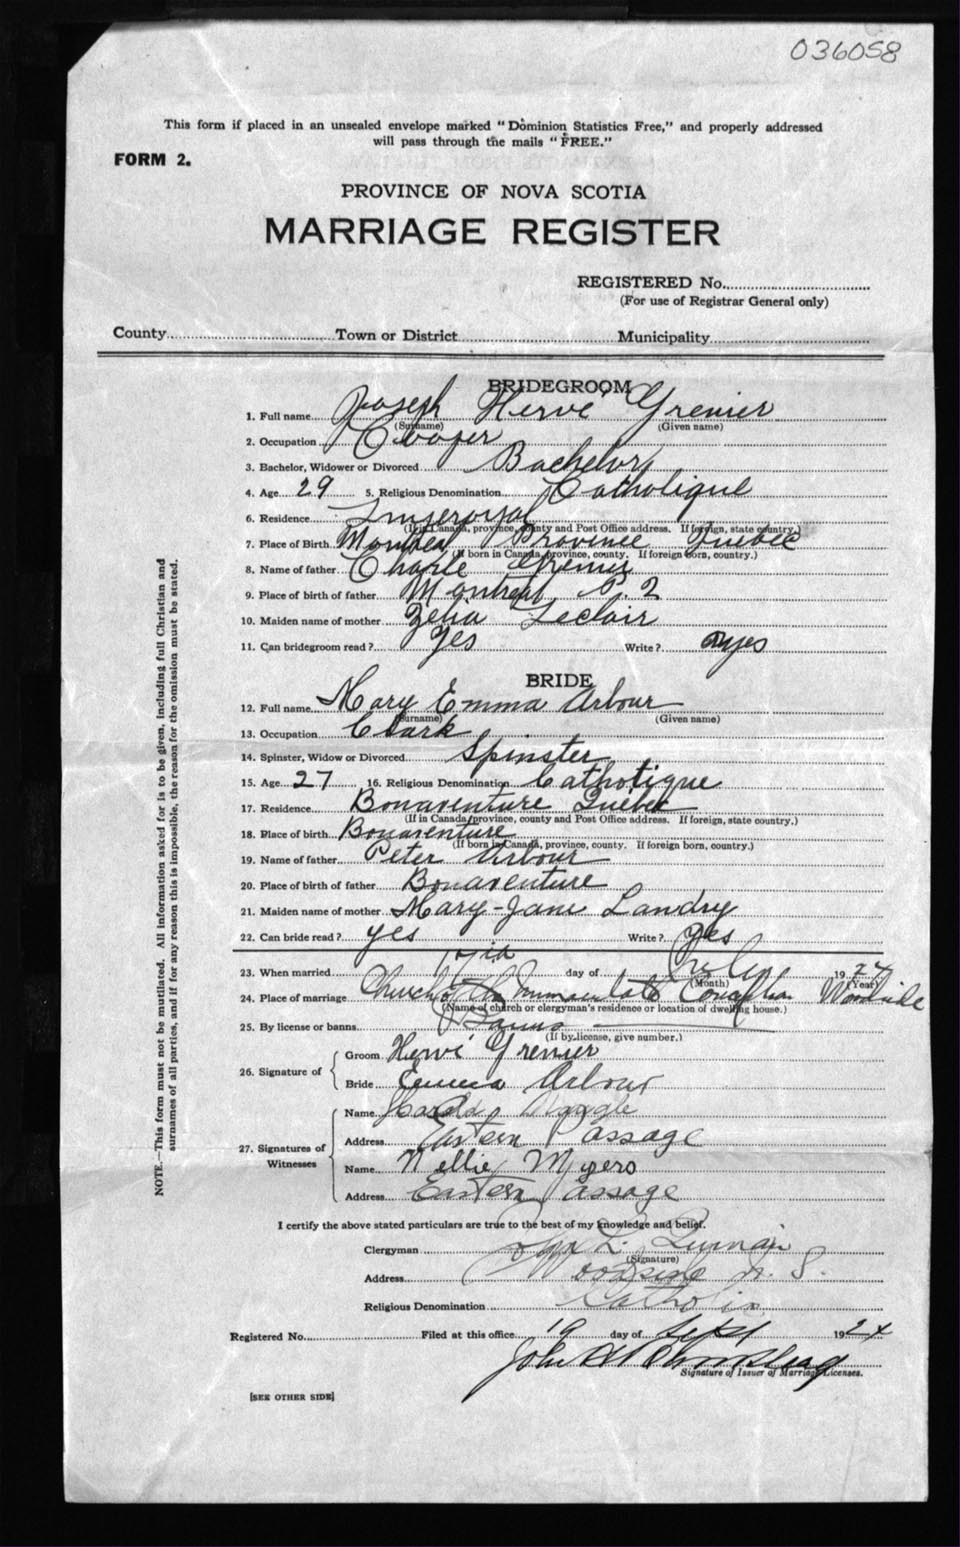 036058
This form if placed in an unsealed envelope marked "Dominion Statistics Free," and properly addressed
will pass through the mails "FREE."
FORM 2.
PROVINCE OF NOVA SCOTIA
MARRIAGE REGISTER
REGISTERED No.
(For use of Registrar General only)
County Town or District Municipality
BRIDEGROOM
1. Full name Joseph Hervé Grenier
(Surname) (Given name)
2. Occupation Cooper
3. Bachelor, Widower or Divorced Bachelor
4. Age 29 5. Religious Denomination Catholique
6. Residence Imperoyal
(If in Canada, province, county and Post Office address. If foreign, state country.)
7. Place of Birth Montreal Province Quebec
(If born in Canada, province, county. If foreign born, country.)
8. Name of father Charle Grenier
9. Place of birth of father Montreal P. 2
10. Maiden name of mother Zelia Leclair
11. Can bridegroom read? Yes Write? yes
BRIDE
12. Full name Mary Emma Arbour
(Surname) (Given name)
13. Occupation Clark
14. Spinster, Widow or Divorced Spinster
15. Age 27 16. Religious Denomination Catholique
17. Residence Bonaventure Quebec
(If in Canada, province, county and Post Office address. If foreign, state country.)
18. Place of birth Bonaventure
(If born in Canada, province, county. If foreign born, country.)
19. Name of father Peter Arbour
20. Place of birth of father Bonaventure
21. Maiden name of mother Mary-Jane Landry
22. Can bride read? yes Write? yes
23. When married day of July 1924
(Month) (Year)
24. Place of marriage Church of the Immaculate Conception Woodside
(Name of church or clergyman's residence or location of dwelling house.)
25. By license or banns Banns
(If by license, give number.)
26. Signature of Groom Hervé Grenier
Bride Emma Arbour
27. Signatures of Witnesses Name Harold
Address Eastern Passage
Name Nellie Myers
Address Eastern Passage
I certify the above stated particulars are true to the best of my knowledge and belief.
Clergyman L.
(Signature)
Address Woodside N. S.
Religious Denomination Catholic
Registered No. Filed at this office 19 day of Sept 1924
John
Signature of Issuer of Marriage Licenses.
[SEE OTHER SIDE]
NOTE.—This form must not be mutilated. All information asked for is to be given, including full Christian and
surnames of all parties, and if for any reason this is impossible, the reason for the omission must be stated.